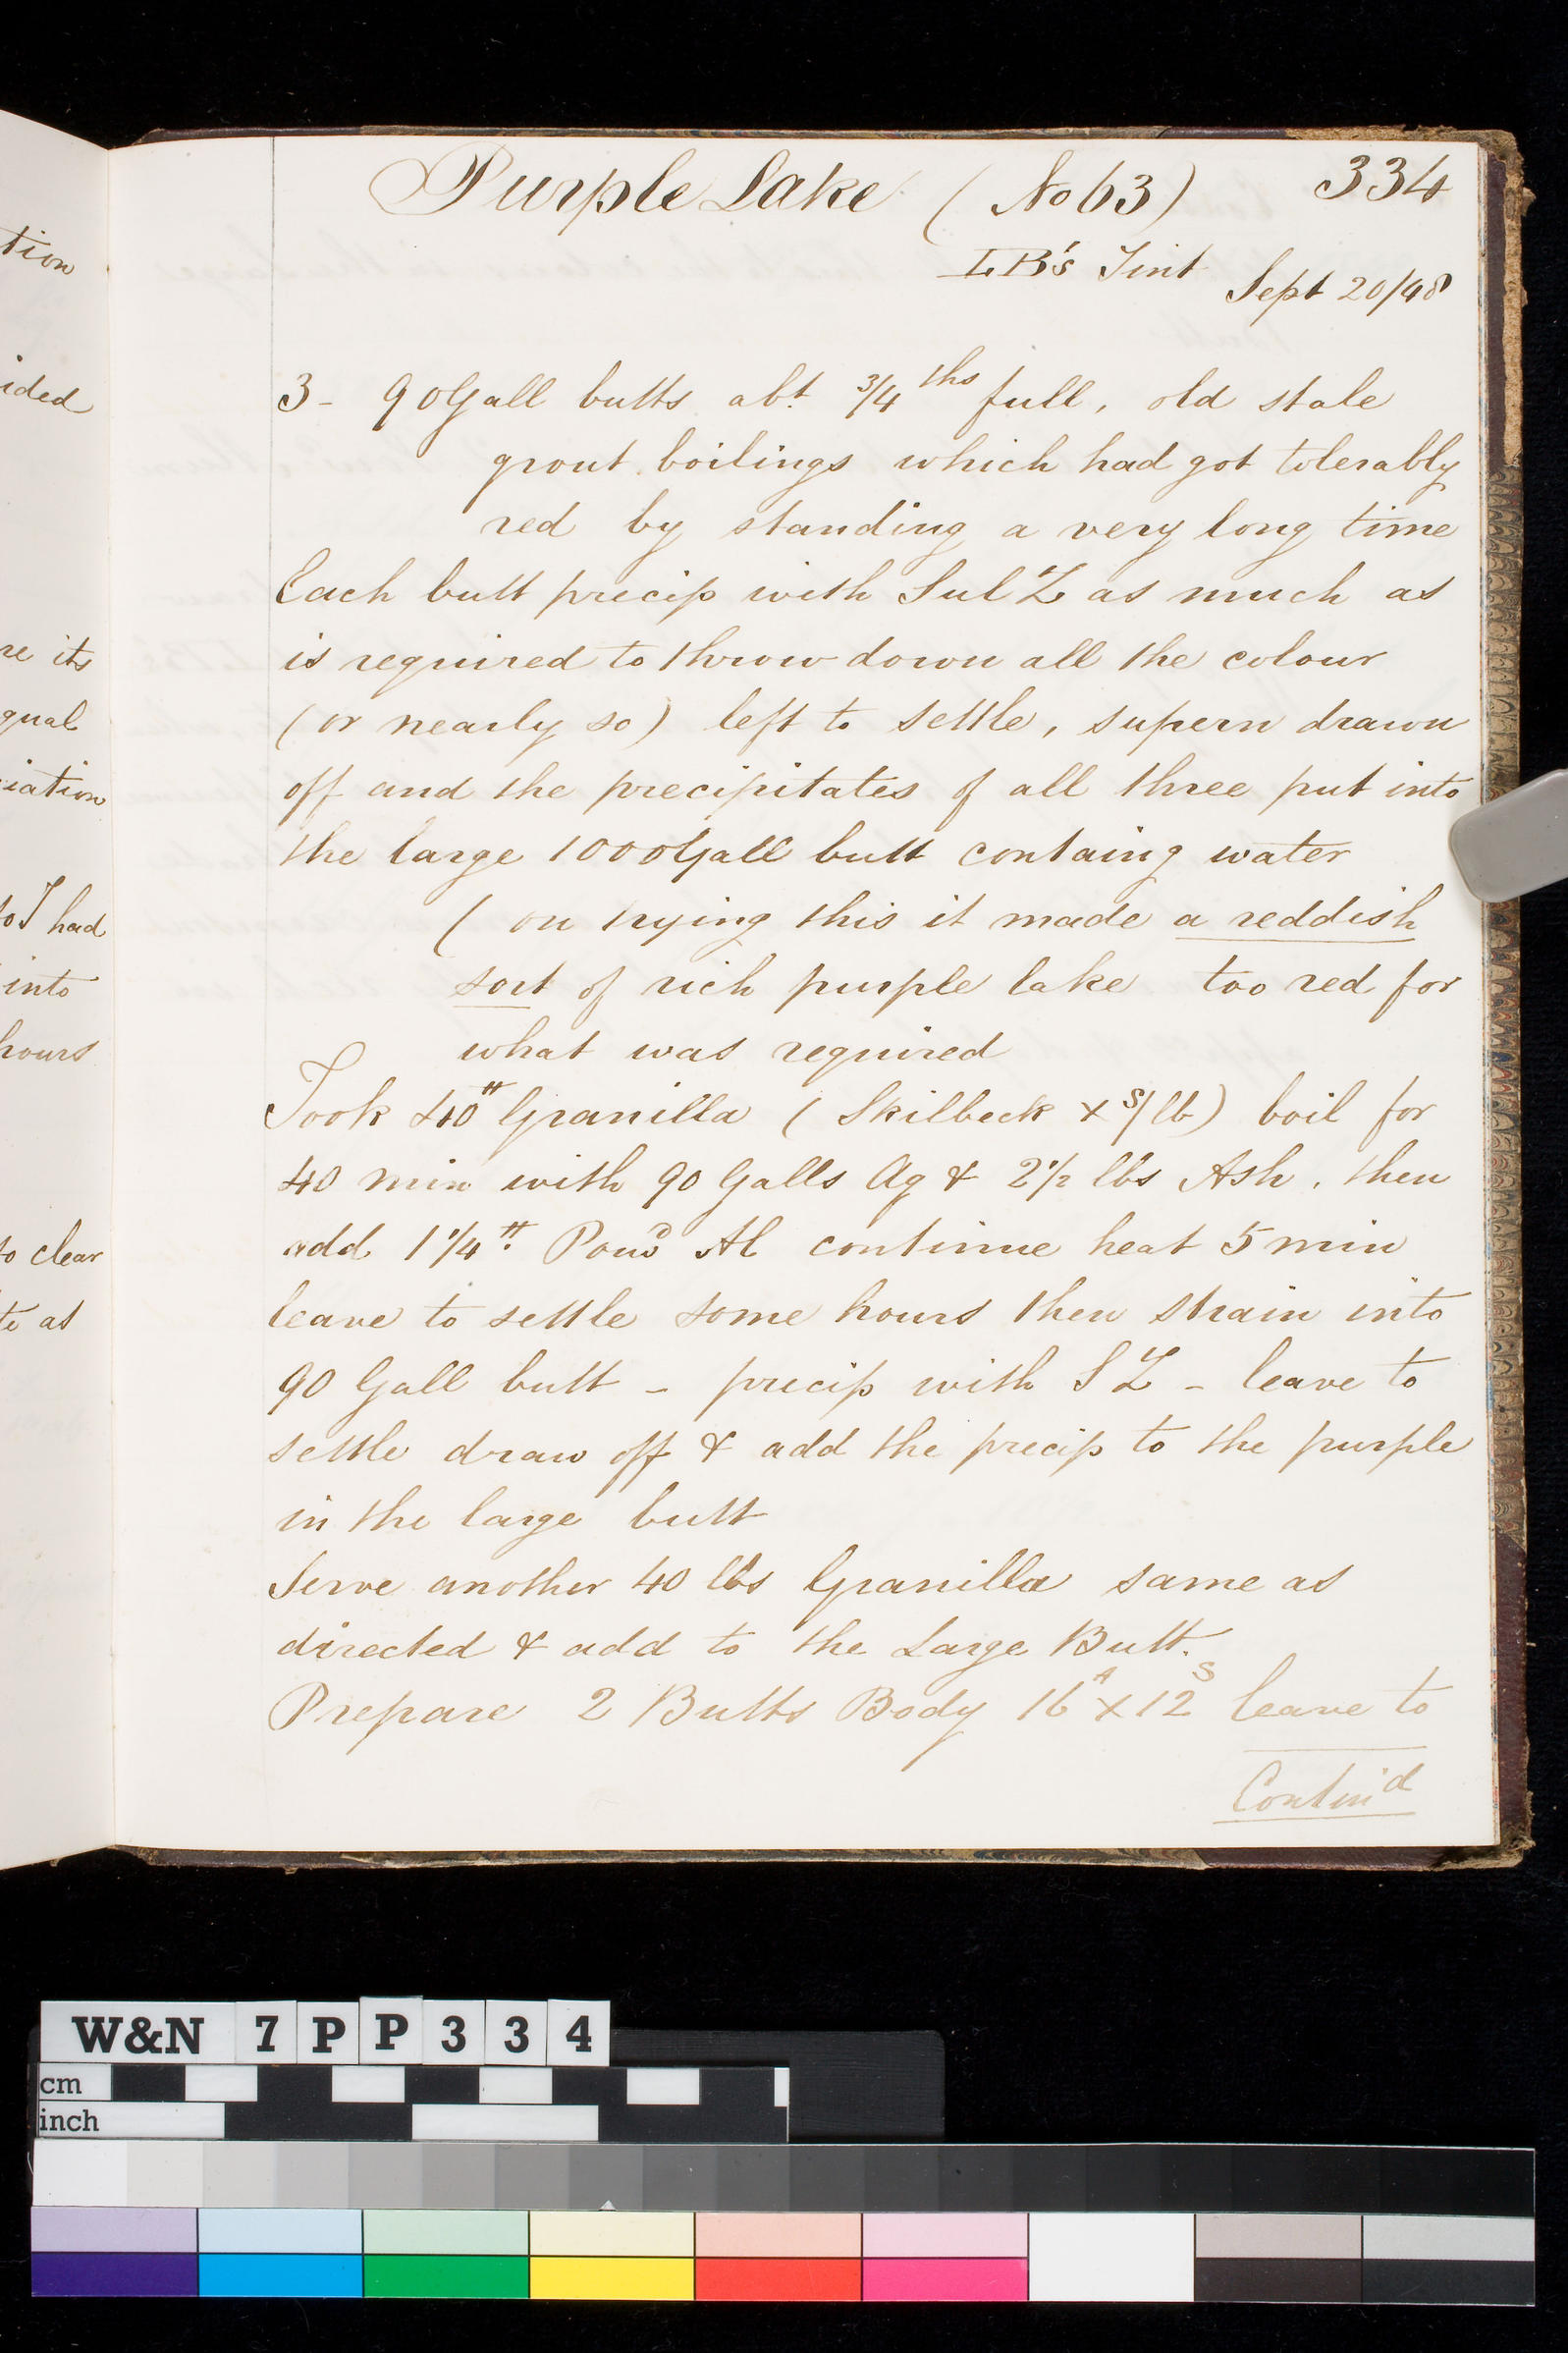 Purple Lake (No 63) 334
LB's Tint
Sept 20/48
3 - 90 Gall butts abt 3/4 ths full, old stale
grout boilings which had got tolerably
red by standing a very long time
Each butt precip with Sul Z as much as
is required to throw down all the colour
(or nearly so) left to settle, supern drawn
off and the precipitates of all three put into
the large 1000 Gall butt containg water
( on trying this it made a reddish
sort of rich purple lake too red for
what was required
Took 40 # Granilla ( Skilbeck x s/lb) boil for
40 min with 90 Galls Aq & 2 1/2 lbs Ash, then
add 1 1/4 #. Powd Al continue heat 5 min
leave to settle some hours then strain into
90 Gall butt - precip with S Z - leave to
settle draw off & add the precip to the purple
in the large butt
Serve another 40 lbs Granilla same as
directed & add to the Large Butt.
Prepare 2 Butts Body 16 A x 12 S leave to
Contin'd
tion
ided
re its
qual
iation
to I had
into
hours
to clear
te at
W&N 7 P P 3 3 4
cm
inch